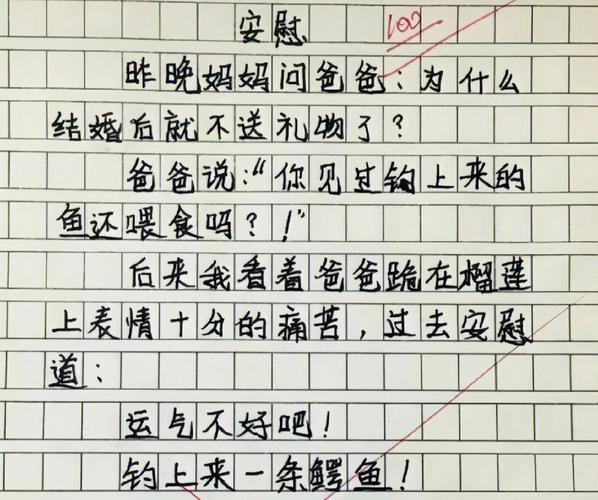 安慰 100
昨晚妈妈问爸爸:为什么
结婚后就不送礼物了?
爸爸说:“你见过钓上来的
鱼还喂食吗?!”
后来我看着爸爸跪在榴莲
上表情十分的痛苦,过去安慰
道:
运气不好吧!
钓上来一条鳄鱼!